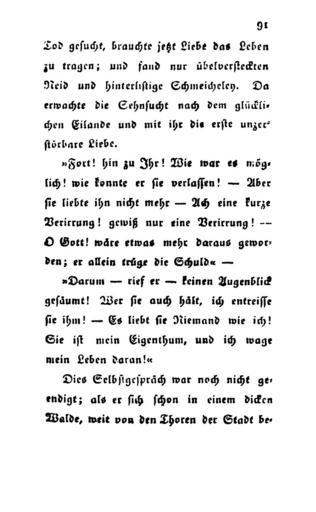 91
Tod gesucht, brauchte jetzt Liebe das Leben
zu tragen; und fand nur übelversteckten
Neid und hinterlistige Schmeicheley. Da
erwachte die Sehnsucht nach dem glückli-
chen Eilande und mit ihr die erste unzer-
störbare Liebe.
»Fort! hin zu Ihr! Wie war es mög-
lich! wie konnte er sie verlassen! — Aber
sie liebte ihn nicht mehr — Ach eine kurze
Verirrung! gewiß nur eine Verirrung! —
O Gott! wäre etwas mehr daraus gewor-
den; er allein trüge die Schuld« —
»Darum — rief er — keinen Augenblick
gesäumt! Wer sie auch hält, ich entreisse
sie ihm! — Es liebt sie Niemand wie ich!
Sie ist mein Eigenthum, und ich wage
mein Leben daran!«
Dies Selbstgespräch war noch nicht ge-
endigt; als er sich schon in einem dicken
Walde, weit von den Thoren der Stadt be-